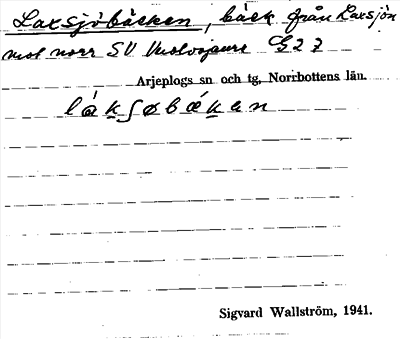 Laxsjöbäcken, bäck från Laxsjön
mot norr SV
Arjeplogs sn och tg, Norrbottens län.
lákʃøbǽkan
Sigvard Wallström, 1941.